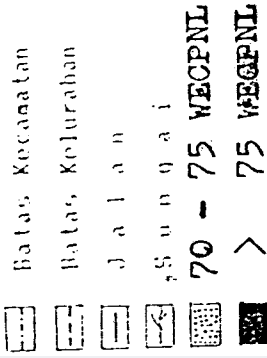 Batas Kecamatan
Batas Kelurahan
J a l a n
S u n g a i
70 - 75 WECPNL
> 75 WECPNL